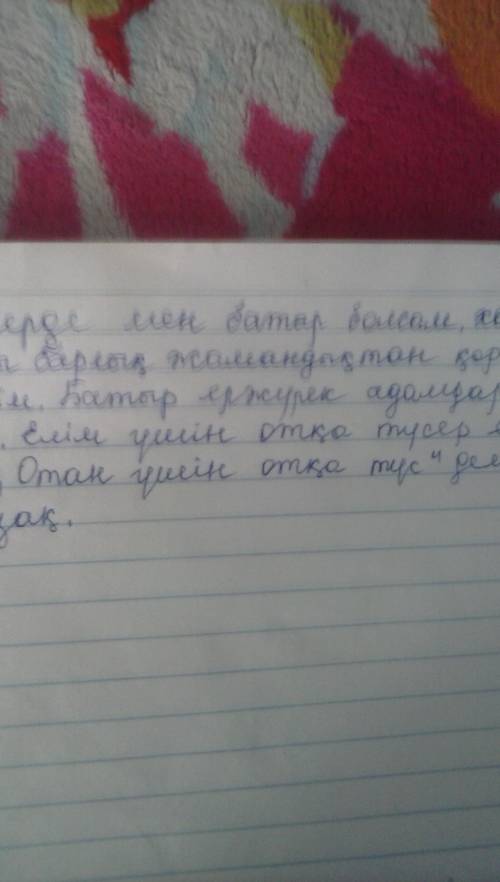 ерде мен батыр болсам, ха
барлық жамандықтан қор
ім. Батыр ержүрек адамдар
. Елім үшін отқа түсер е
Отан үшін отқа түс" деп
зақ.